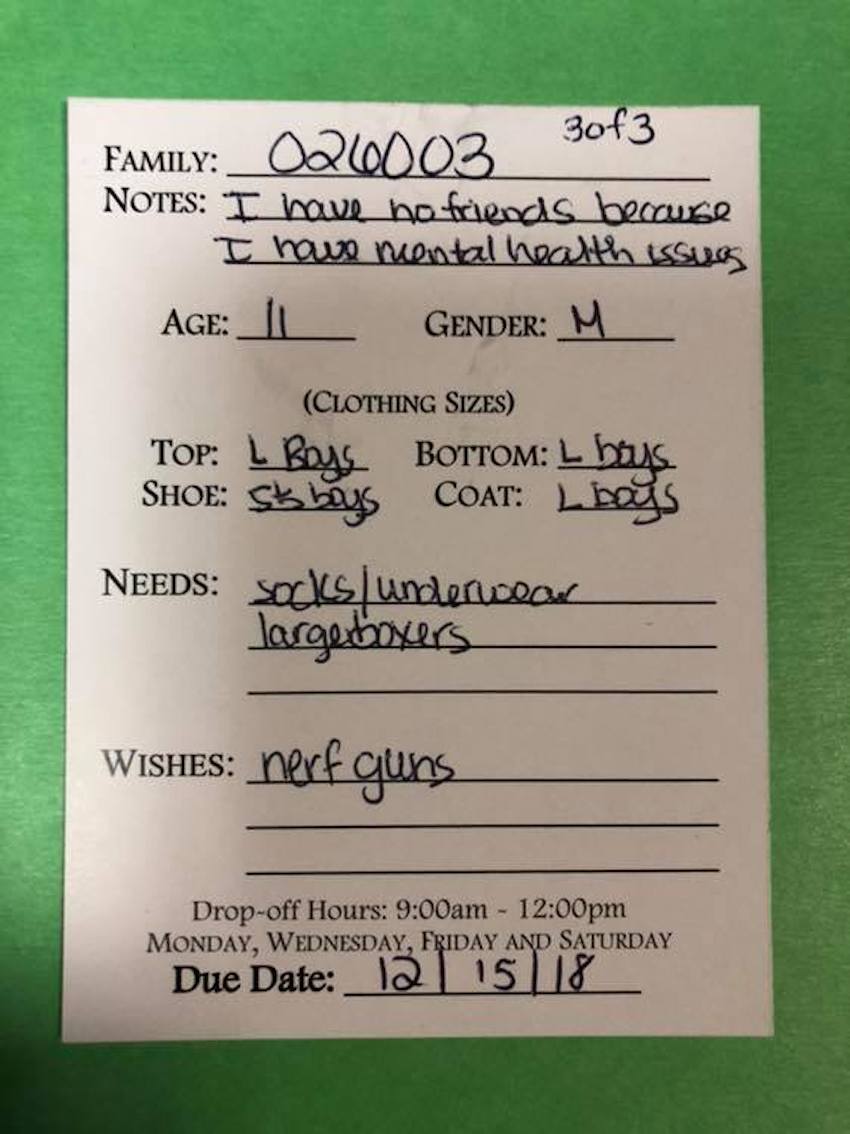 3of3
FAMILY: 026003
NOTES: I have no friends because
I have mental health issues
AGE: 11 GENDER: M
(CLOTHING SIZES)
TOP: L Boys BOTTOM: L boys
SHOE: boys COAT: L boys
NEEDS: socks/underwear
large boxers
WISHES: nerf guns
Drop-off Hours: 9:00am - 12:00pm
MONDAY, WEDNESDAY, FRIDAY AND SATURDAY
Due Date: 12/15/18